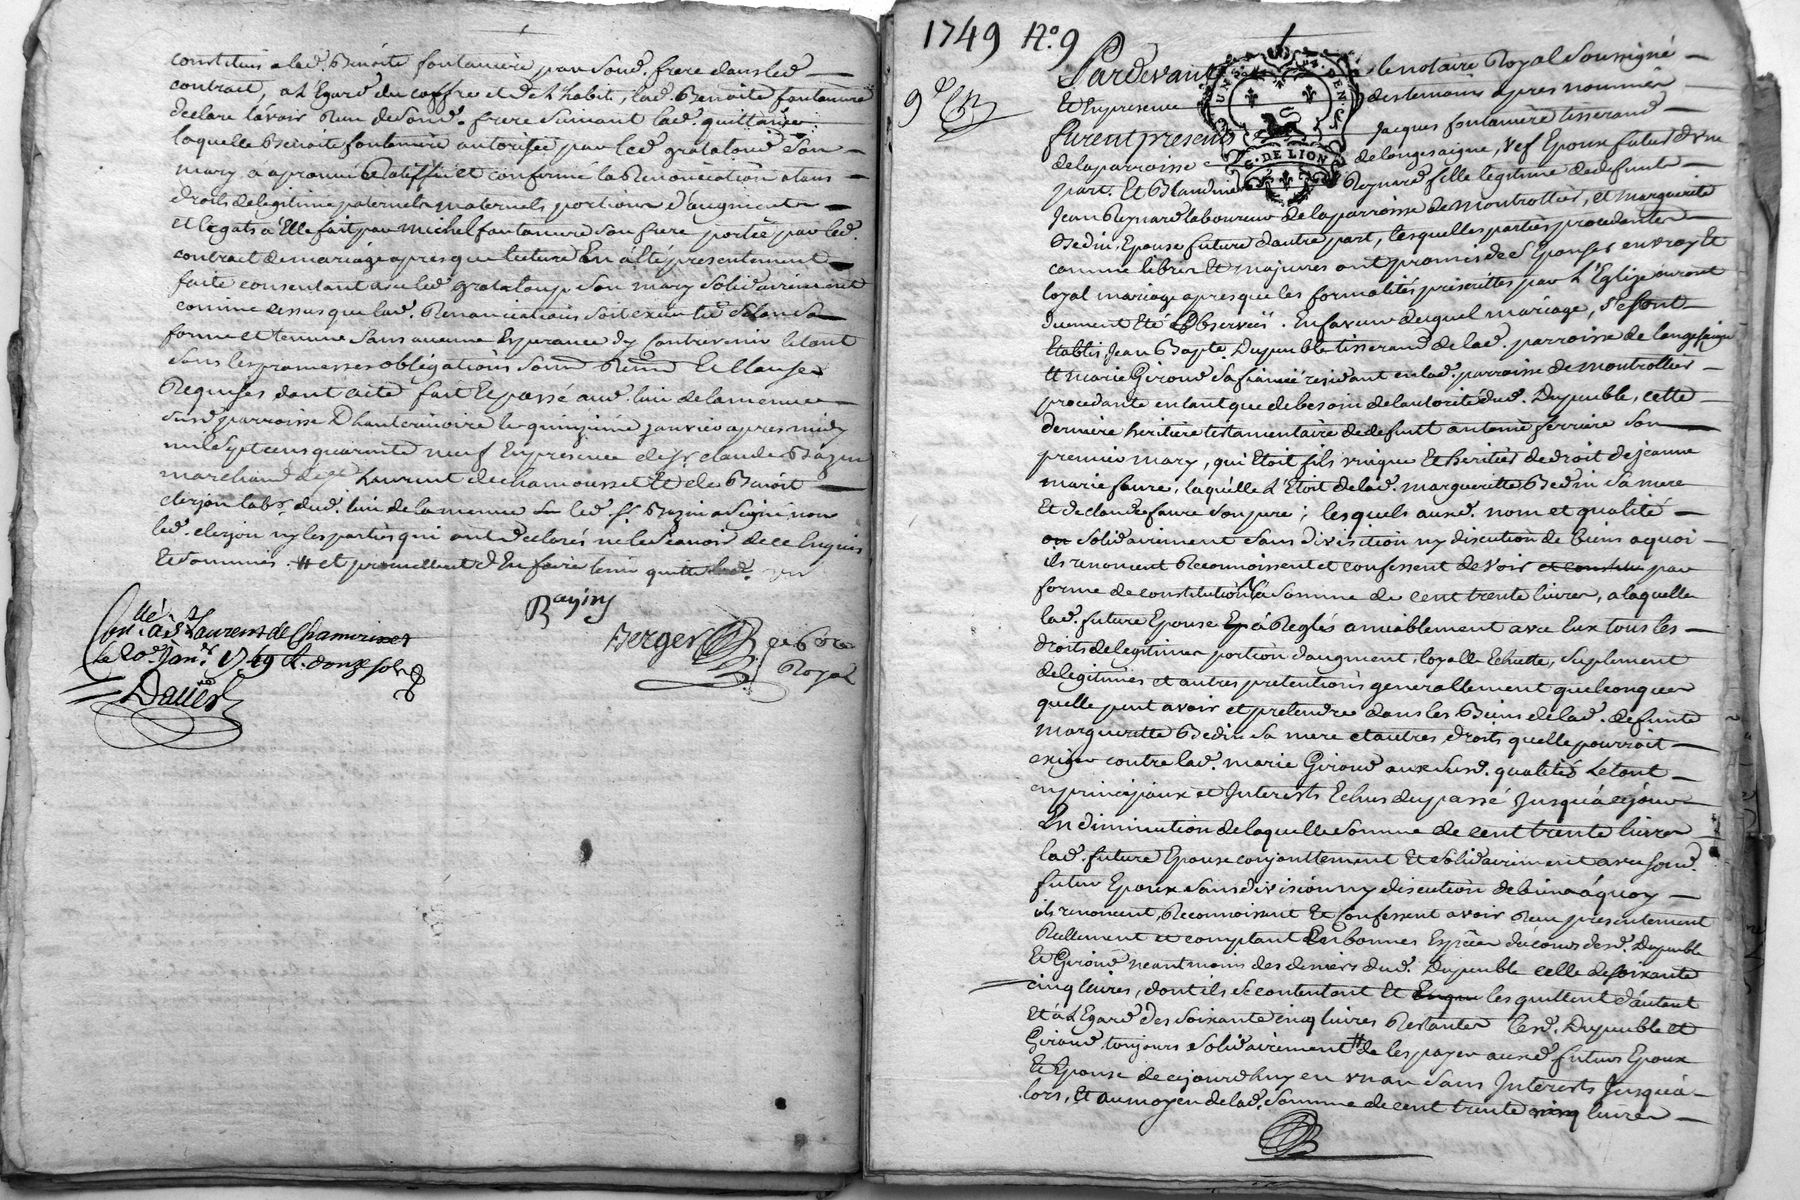 constitués a lad. Benoite fontaniere par sond. frere dans led.
contrat, a L'Egard du coffre et de L'habit, lad. Benoite fontaniere
declare l'avoir Reçu de Sond. frere suivant lad. quittance
laquelle Benoite fontaniere autorisée par led. grataloud Son
mary a aprouvé Ratiffié et confirmé la Renonciation a tous
droits de legitime paternels maternels portion d'augment
et legats a Elle fait par michel fontaniere Son frere portée par led.
contract de mariage apres que lecture En a Eté presentement
faite consentant avec led. grataloup Son mary Solidairement
comme dessus que lad. Renonciation Soit executée Selon Sa
forme et teneur Sans aucune Esperance d'y Contrevenir le tout
Sous les promesses obligations Soum. Renon. Et Clauses
Requises dont acte fait Et passé aud. lieu de la menue
Susd. parroisse D'hauterivoire le quinzieme janvier apres midy
mil Sept cens quarante neuf En presence de Sr claude Bazin
marchand de St Laurent de chamousset Et de Benoit
clerjon labr. dud. lieu de la menue led. Sr Bazin a Signé non
led. clerjon ny les parties qui ont declarés ne le Scavoir de ce Enquis
Et Sommés. # et promettent d'En faire tenir quitte led.
Bazin
Berger
Royal
Conllé. a St Laurent de Chamousset
le 20e Janr. 1749 R. douze sols
Daller
1749 No. 9
9e
Pardevant le notaire Royal Soussigné
Et En presence des temoins apres nommés
furent presents Jacques fontaniere tisserand
de la parroisse de longesaigne, vef Epoux futur d'une
part. Et Blandine Reynard fille legitime de defunt
UN DE
G. DE LION
Jean Reynard laboureur de la parroisse de montrottier, et marguerite
Bedin, Epouse future d'autre part, lesquelles parties procedantes
comme libres Et majeures ont promis de S'Epouser en vray Et
loyal mariage apres que les formalités prescrittes par L'Eglise auront
duement Eté Observées. En faveur duquel mariage, S'est ont
Etablis Jean Bapte. Dupeuble tisserand de lad. parroisse de longesaigne
Et marie Giroud Sa fiancée residant en lad. parroisse de montrottier
procedante en tant que de besoin de l'autorité dud. Dupeuble, cette
derniere heritiere testamentaire de defunt antoine ferriere Son
premier mary, qui Etoit fils unique Et heritier de droit de jeanne
marie faure, laquelle L'Etoit de lad. marguerite Bedin Sa mere
Et de claude faure Son pere; lesquels auxd. nom et qualité
Solidairement Sans division ny discution de biens a quoi
ils renoncent Reconnoissent et confessent devoir et constitu par
forme de constitution La Somme de cent trente livres, a laquelle
lad. future Epouse a Reglés amiablement avec Eux tous les
droits de legitimes portion d'augment, loyalle Echutte, Suplement
de legitimes et autres pretentions generallement quelconques
quelle peut avoir et pretendre dans les Biens de lad. defunte
marguerite Bedin Sa mere et autres droits quelle pourroit
exiger contre lad. marie Giroud aux Susd. qualités Le tout
en principaux et Interests Echus du passé Jusqu'a ce jour
En diminution de laquelle Somme de cent trente livres
lad. future Epouse conjointement Et Solidairement avec Sond.
futur Epoux Sans division ny discution de biens a quoy
ils renoncent, Reconnoissent Et Confessent avoir Reçu presentement
Reellement et comptant En bonnes Espèces de cours desd. Dupeuble
Et Giroud neantmoins des deniers dud. Dupeuble celle de soixante
cinq livres, dont ils Se contentent Et les quittent d'autant
Et a L'Egard des Soixante cinq livres Restantes lesd. Dupeuble et
Giroud toujours Solidairement # de les payer auxd. futurs Epoux
Et Epouse de ajourd'huy en un an Sans Interests Jusqu'a
lors, Et au moyen de lad. Somme de cent trente cinq livres